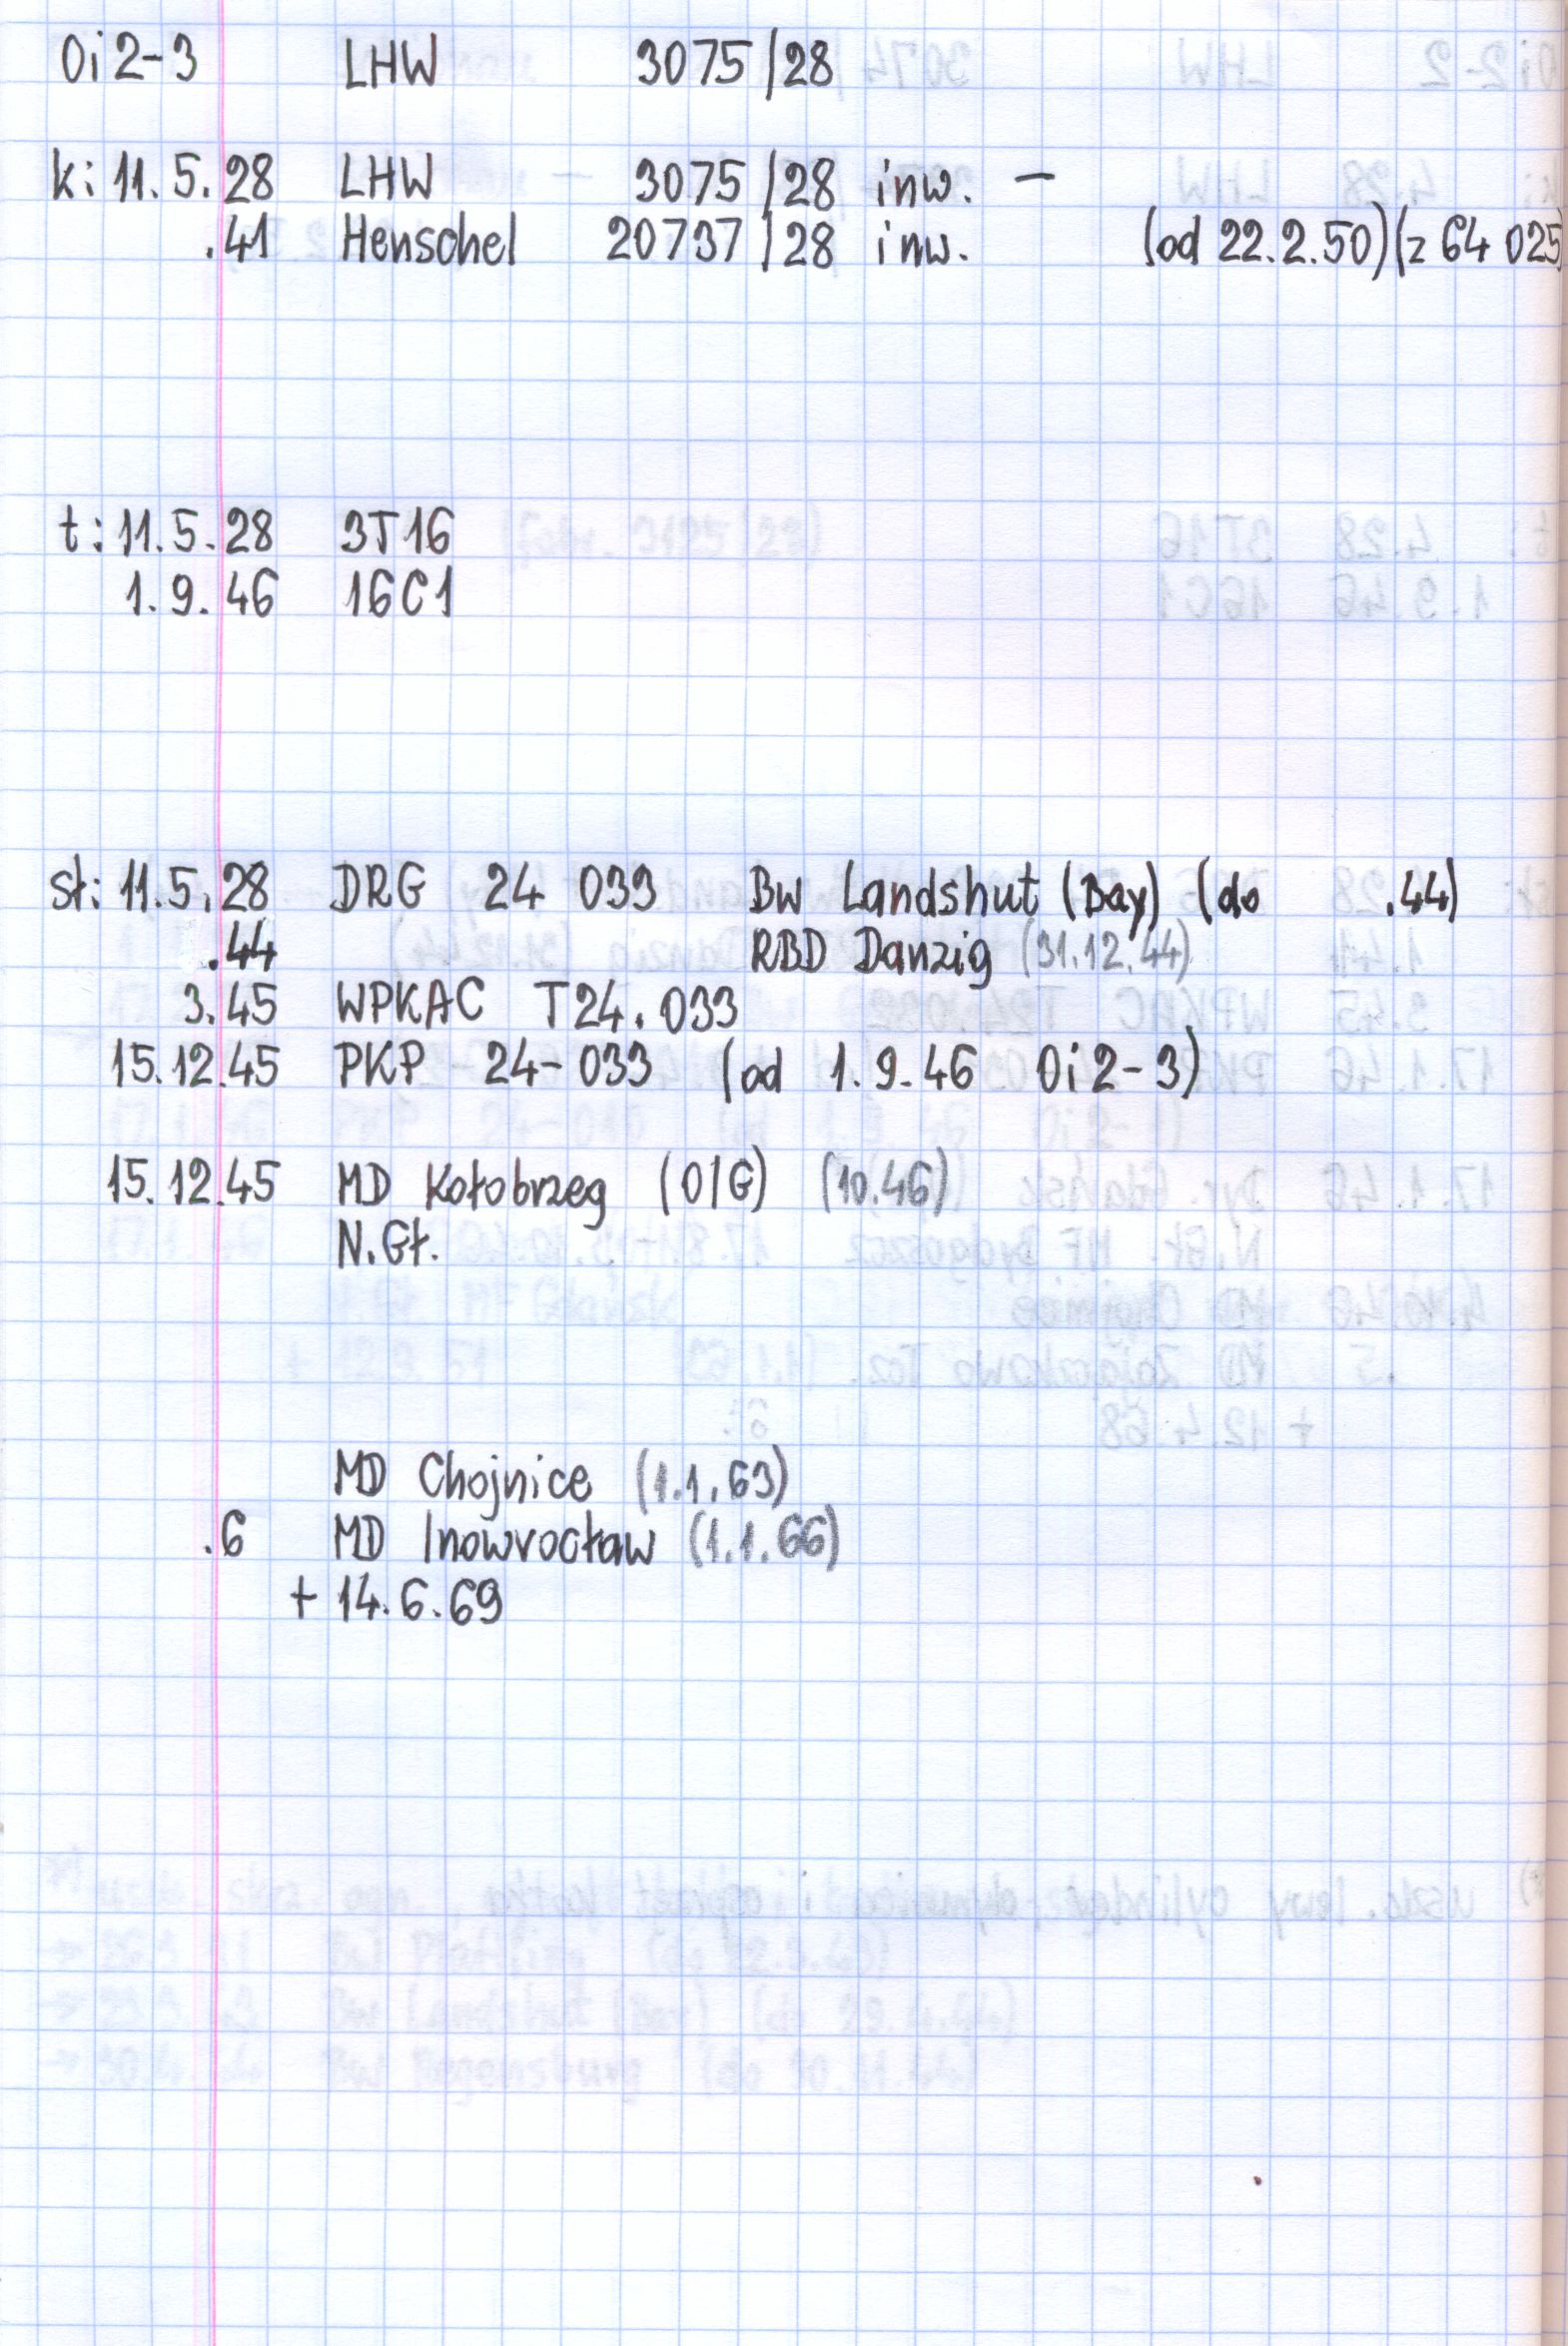 Oi2-3 LHW 3075/28
k: 11.5.28 LHW 3075/28 inw. –
.41 Henschel 20737/28 inw. (od 22.2.50)(z 64 025)
t: 11.5.28 3T16
1.9.46 16C1
sł: 11.5.28 DRG 24 033 Bw Landshut (Bay) (do .44)
.44 RBD Danzig (31.12.44)
3.45 WPKAC T24.033
15.12.45 PKP 24-033 (od 1.9.46 Oi2-3)
15.12.45 MD Kołobrzeg (O/G) (10.46)
N.Gł.
MD Chojnice (1.1.63)
.6 MD Inowrocław (1.1.66)
+ 14.6.69